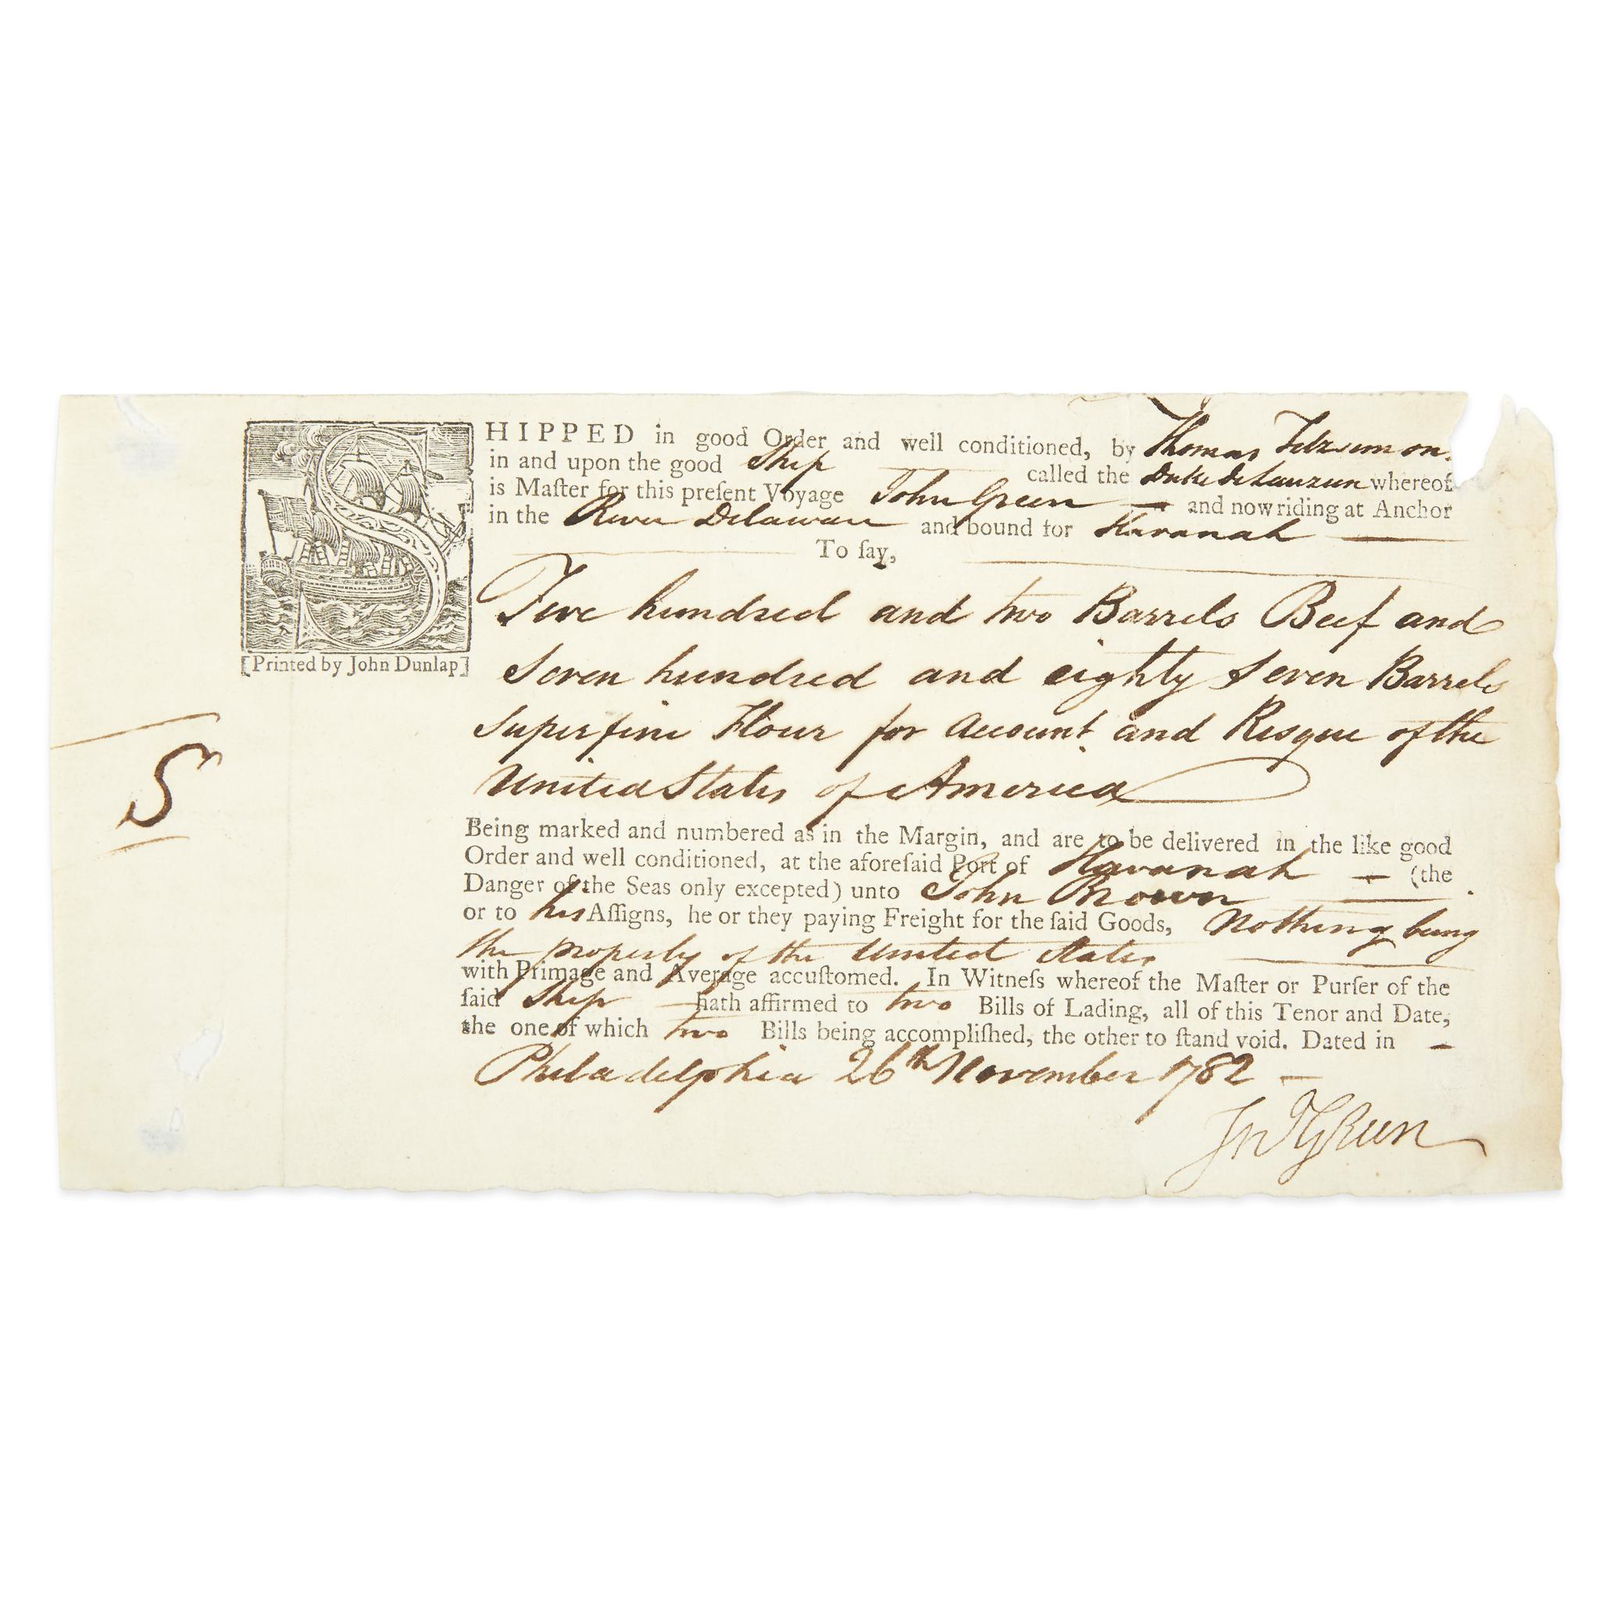 SHIPPED in good Order and well conditioned, by Thomas Fitzsimons
in and upon the good Ship called the Duke de Lauzun whereof
is Maſter for this preſent Voyage John Green — and now riding at Anchor
in the River Delaware and bound for Havanah —
To ſay,
Five hundred and two Barrels Beef and
Seven hundred and eighty Seven Barrels
Superfine Flour for account and Risque of the
United States of America
[Printed by John Dunlap]
S
Being marked and numbered as in the Margin, and are to be delivered in the like good
Order and well conditioned, at the aforeſaid Port of Havanah — (the
Danger of the Seas only excepted) unto John Brown
or to his Aſſigns, he or they paying Freight for the ſaid Goods, Nothing being
the property of the United States
with Primage and Average accuſtomed. In Witneſs whereof the Maſter or Purſer of the
ſaid Ship hath affirmed to two Bills of Lading, all of this Tenor and Date,
the one of which two Bills being accompliſhed, the other to ſtand void. Dated in —
Philadelphia 26th November 1782 —
Jno Green